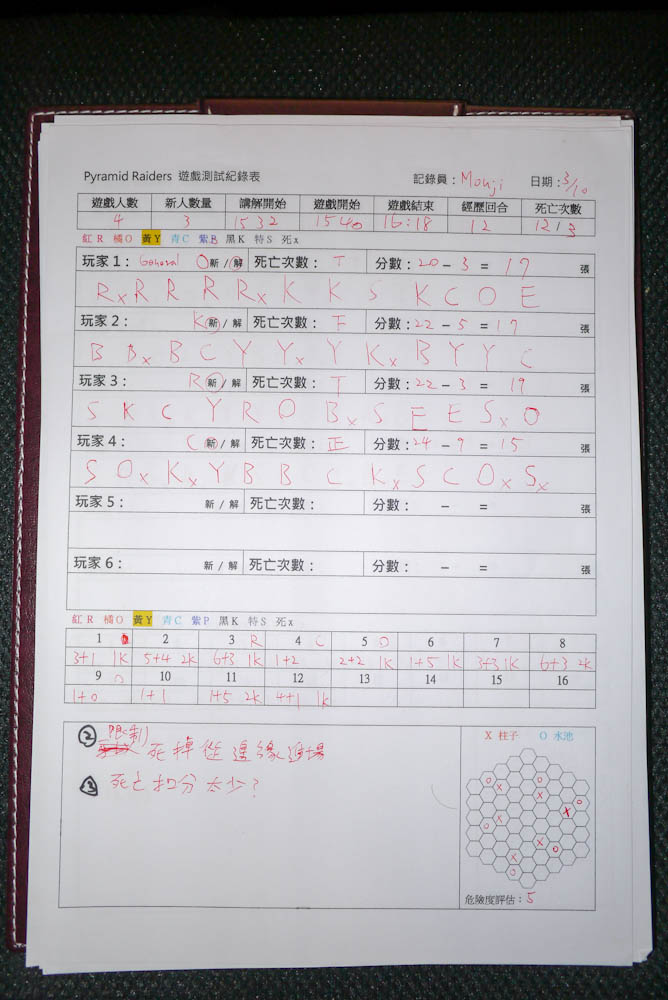 Pyramid Raiders 遊戲測試紀錄表 記錄員：Mouji 日期：3/10
遊戲人數 新人數量 講解開始 遊戲開始 遊戲結束 經歷回合 死亡次數
4 3 1532 1540 16:18 12 12/3
紅R 橘O 黃Y 青C 紫B 黑K 特S 死x
玩家1：General O 新/解 死亡次數：T 分數：20 - 3 = 17 張
Rx R R R Rx K K S K C O E
玩家2： K 新/解 死亡次數：下 分數：22 - 5 = 17 張
B Bx B C Y Yx Y Kx B Y Y C
玩家3： R 新/解 死亡次數：T 分數：22 - 3 = 19 張
S K C Y R O Bx S E E Sx O
玩家4： C 新/解 死亡次數：正 分數：24 - 9 = 15 張
S Ox Kx Y B B C Kx S C Ox Sx
玩家5： 新/解 死亡次數： 分數： - = 張
玩家6： 新/解 死亡次數： 分數： - = 張
紅R 橘O 黃Y 青C 紫P 黑K 特S 死x
1 2 3 R 4 C 5 O 6 7 8
3+1 1K 5+4 2K 6+3 1K 1+2 2+2 1K 1+5 1K 3+3 1K 6+3 2K
9 O 10 11 12 13 14 15 16
1+0 1+1 1+5 2K 4+1 1K
② 限制 死掉從邊緣進場
③ 死亡扣分太少？
X 柱子 O 水池
危險度評估：5